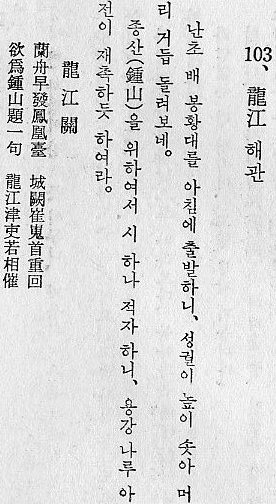 103、龍江 해관
난초 배 봉황대를 아침에 출발하니、성궐이 높이 솟아 머
리 거듭 돌려보네。
종산(鍾山)을 위하여서 시 하나 적자 하니、용강 나루 아
전이 재촉하듯 하여라。
龍江關
蘭舟早發鳳凰臺 城闕崔嵬首重回
欲爲鍾山題一句 龍江津吏若相催